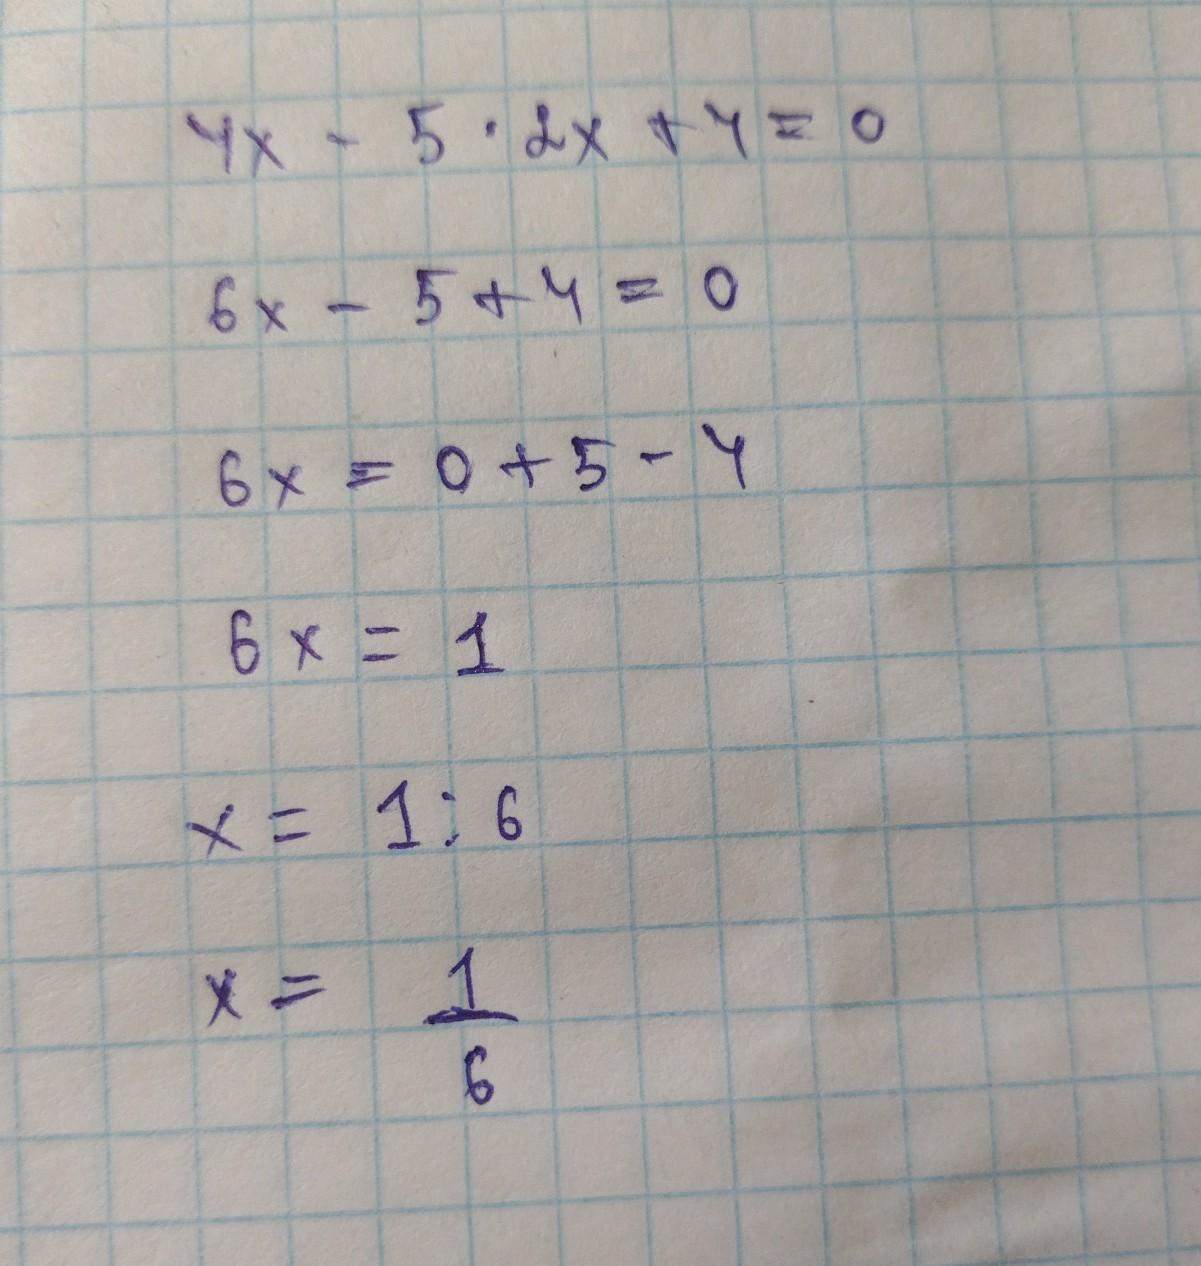 4x - 5 · 2x + 4 = 0
6x - 5 + 4 = 0
6x = 0 + 5 - 4
6x = 1
x = 1 : 6
x = 1/6